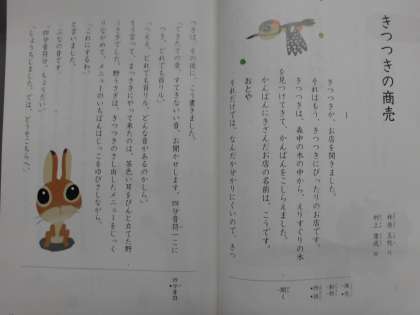 きつつきの商売
1
きつつきが、お店を開きました。
それはもう、きつつきにぴったりのお店です。
きつつきは、森中の木の中から、えりすぐりの木
を見つけてきて、かんばんをこしらえました。
かんばんにきざんだお店の名前は、こうです。
おとや
それだけでは、なんだか分かりにくいので、きつ
つきは、その後に、こう書きました。
「できたての音、すてきないい音、お聞かせします。四分音符一こに
つき、どれでも百リル。」
「へええ。どれでも百リル。どんな音があるのかしら。」
そう言って、まっさきにやって来たのは、茶色い耳をぴんと立てた野
うさぎでした。野うさぎは、きつつきのさし出したメニューをじっく
りながめて、メニューのいちばんはじっこをゆびさしながら、
「これにするわ。」
と言いました。
ぶなの音です。
「四分音符分、ちょうだい。」
「しょうちしました。では、どうぞこちらへ。」
四分音符